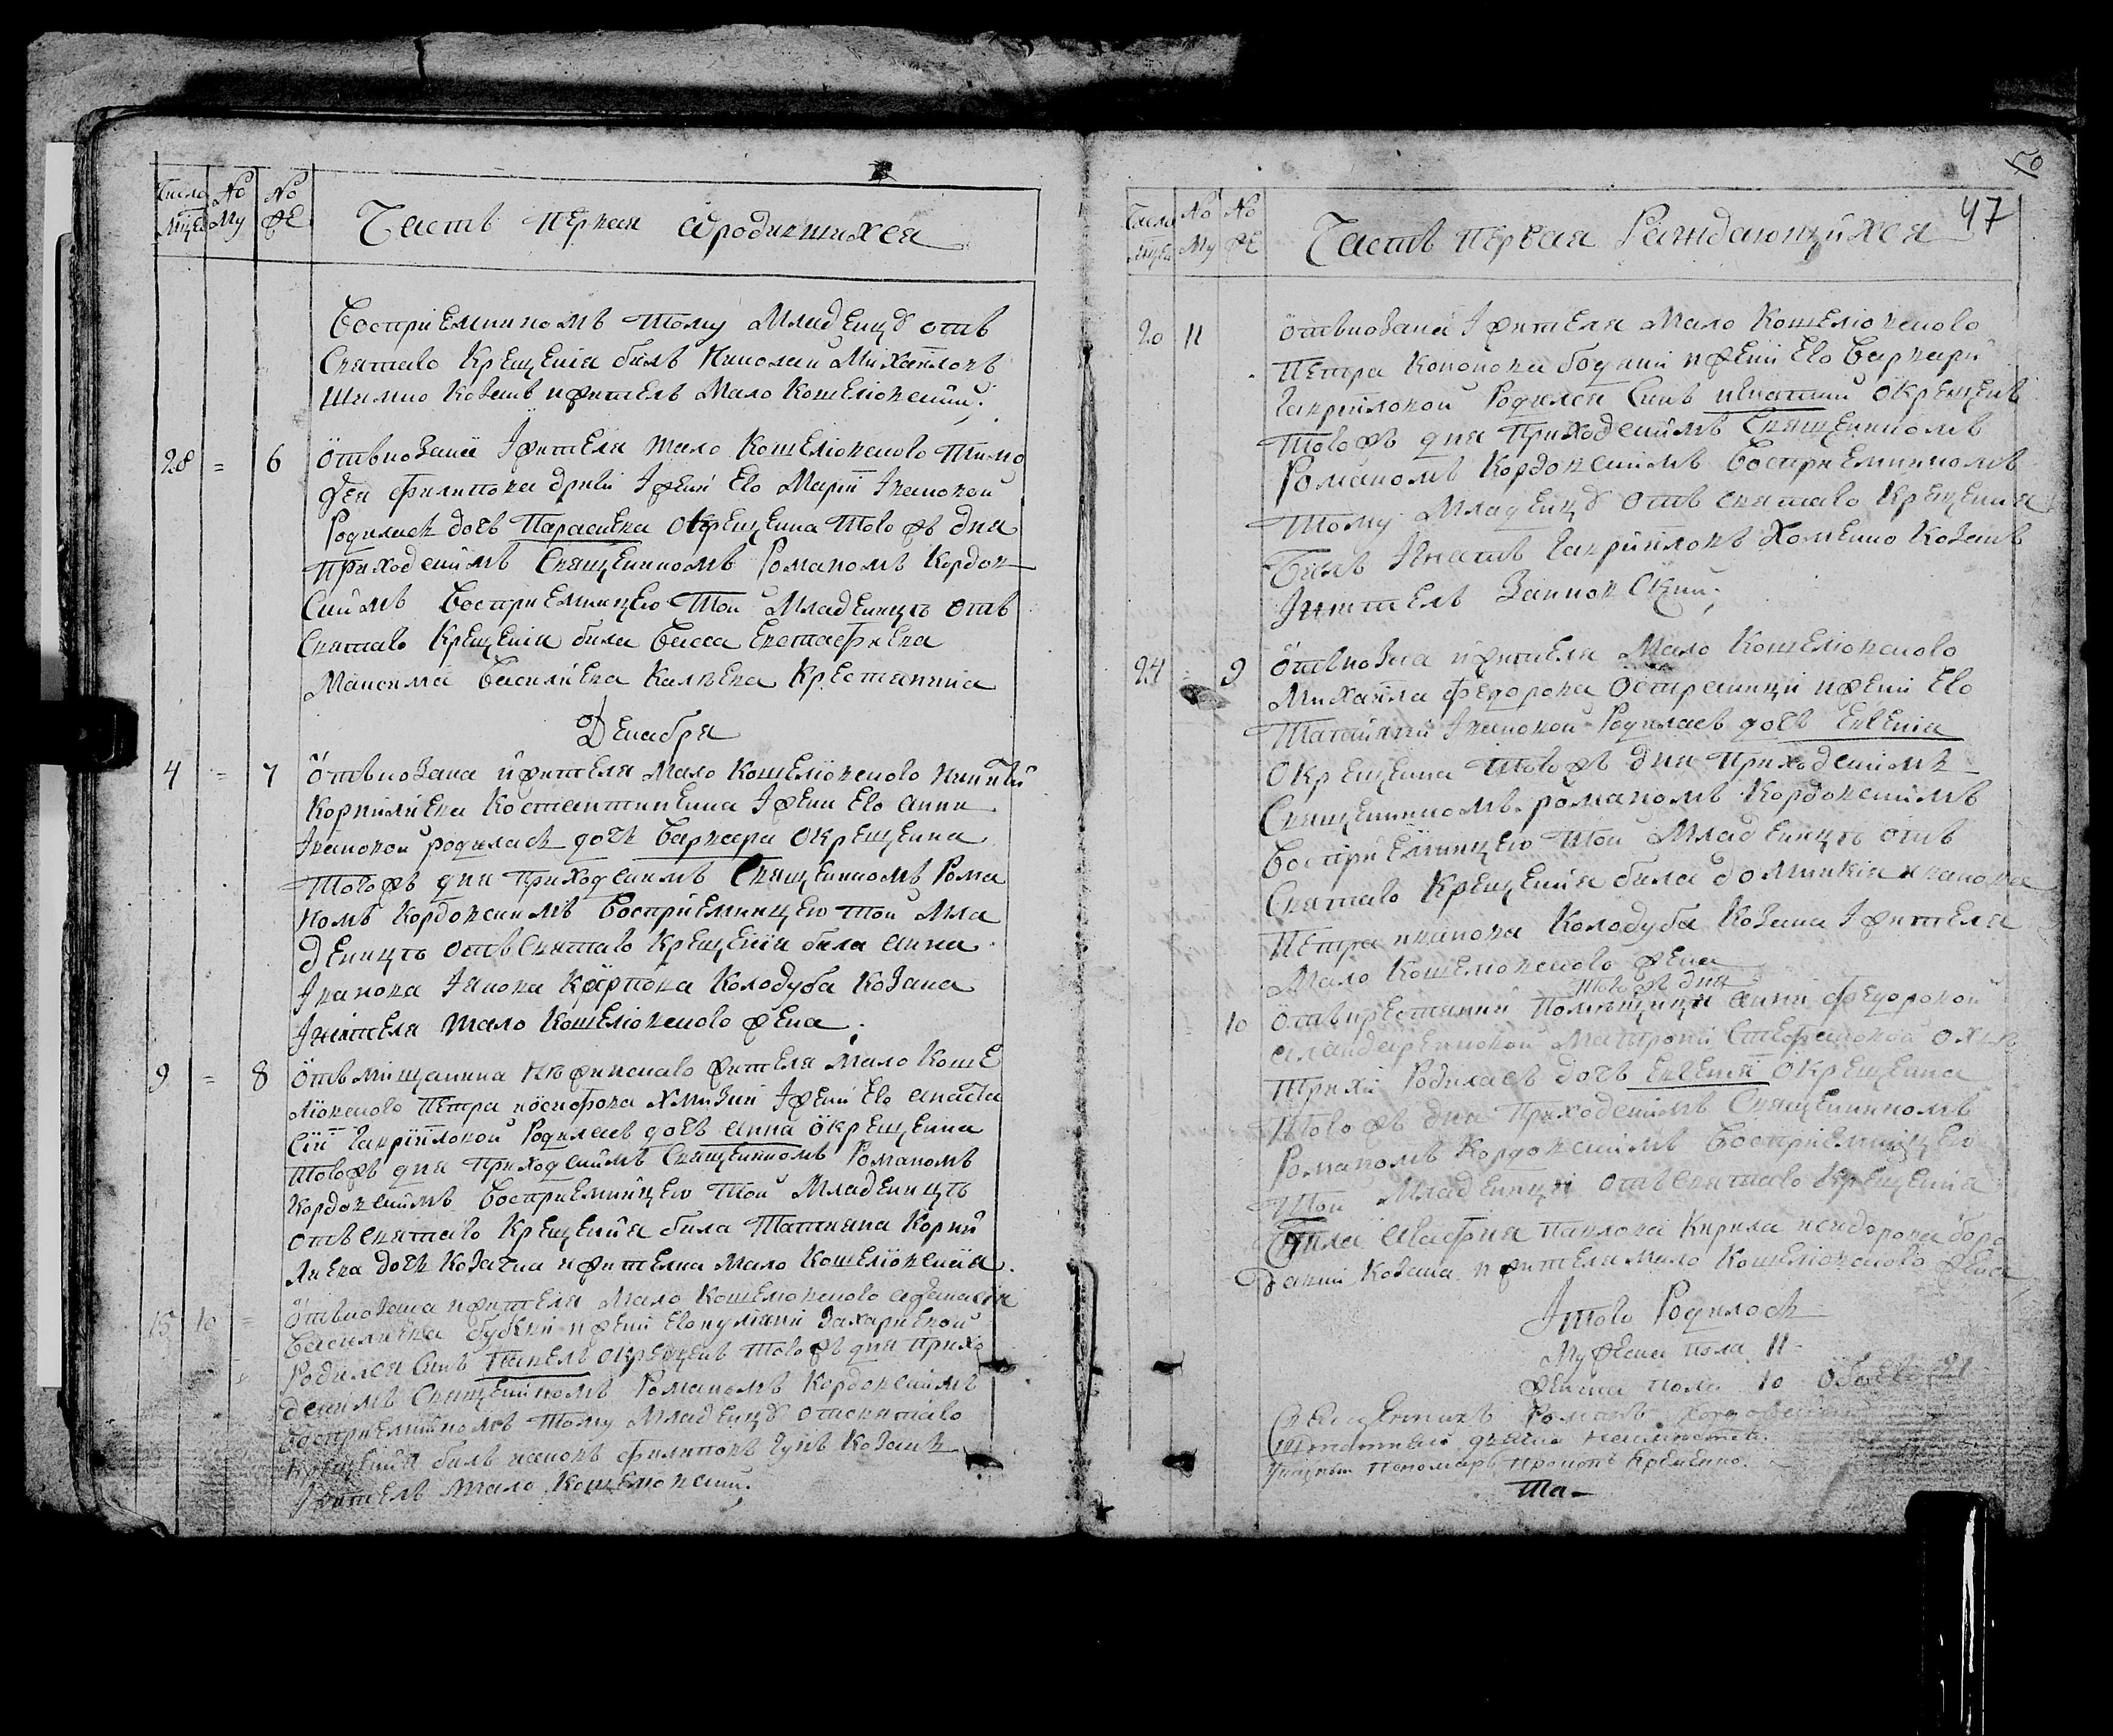 Число No No
мцеа Му Же
Часть первая о родившихся
Восприемником тому младенцу отъ
Святаго крещенія билъ Николай Михайловъ
Шимко козакъ и житель Мало Кошелювский;
28 = 6 Отъ козака и жителя мало Кошелювского Тимо
фея Филипова и жени его Маріи Івановой
Родилась дочь Параскева окрещенна того жъ дня
приходскимъ Священникомъ Романомъ Кордов
скимъ восприемницею той младеницѣ отъ
Святаго крещенія била Васса Евстафиева
Максима Василиева крестянина
Декабря
4 = 7 Отъ козака и жителя мало Кошелювского
Корнилиева Костантиненка и жени его Анни
Івановой родилась дочь Варвара окрещенна
того жъ дня приходскимъ Священникомъ Рома
номъ Кордовскимъ восприемницею той мла
деницѣ отъ Святаго крещенія била Анна
Іванова Іякова Карпова Колодуба козака
Жителя мало Кошелювского жена.
9 = 8 Отъ мищанина Нѣжинскаго жителя Мало Коше
лювского Петра Иосифова Хмизи и жени его Анаста
сіи Гавриіловой родилась дочь Анна окрещенна
того жъ дня приходскимъ Священникомъ Романомъ
Кордовскимъ восприемницею той младеницѣ
отъ Святаго крещенія била Татияна Корни
лиева дочь козачка и жителка Мало Кошелювская.
15 10 = Отъ козака и жителя Мало Кошелювского Афанасія
Василиева и жени его Захариевой
Родился синъ Павелъ окрещенъ того жъ дня прихо
дскимъ Священникомъ Романомъ Кордовскимъ
восприемникомъ тому младенцу отъ святаго
крещенія билъ Филиповъ козакъ
Житель Мало Кошелювский;
50
47
Число No No
мцеа Му Же
Часть первая Раждающихся
20 11 Отъ козака и жителя Мало Кошелювского
Петра и жени его Варвари
Гавриловой родился синъ Игнатий окрещенъ
того жъ дня приходскимъ Священникомъ
Романомъ Кордовскимъ восприемникомъ
тому младенцу отъ святаго крещенія
билъ Игнатъ Гавриіловъ Хоменко козакъ
Житель
24 = 9 Отъ козака и жителя Мало Кошелювского
Михайла Федорова Остраници и жени его
Татияни Івановой родилась дочь Евгения
окрещенна того жъ дня приходскимъ
Священникомъ Романомъ Кордовскимъ
восприемницею той младеницѣ отъ
Святаго крещенія била Домникія Иванова
Петра Иванова Колодуба козака и жителя
Мало Кошелювского жена
того жъ дня
10 Отъ крестянки помѣщици Анни Федоровой
Матрони Стефановой
родилась дочь Евгения окрещенна
того жъ дня приходскимъ Священникомъ
Романомъ Кордовскимъ восприемницею
той младеници отъ святаго крещенія
била Агафия Павлова Кирила Исидорова Боро
козака и жителя Мало Кошелювского жена
Итого родилось
Мужеска пола 11
Женска пола 10 Обоего 21
Священникъ Романъ Кордовский
Пономаръ Прокопъ Еременко.
Та-